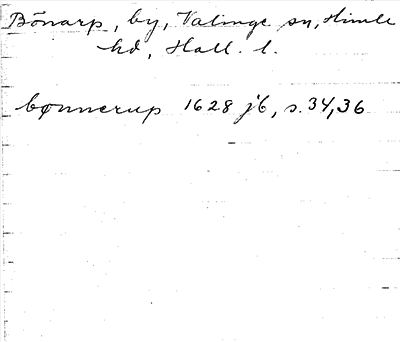 Bönarp, by, Valinge sn, Himle
hd, Hall. l.
bønnerup 1628 jb, s. 34, 36